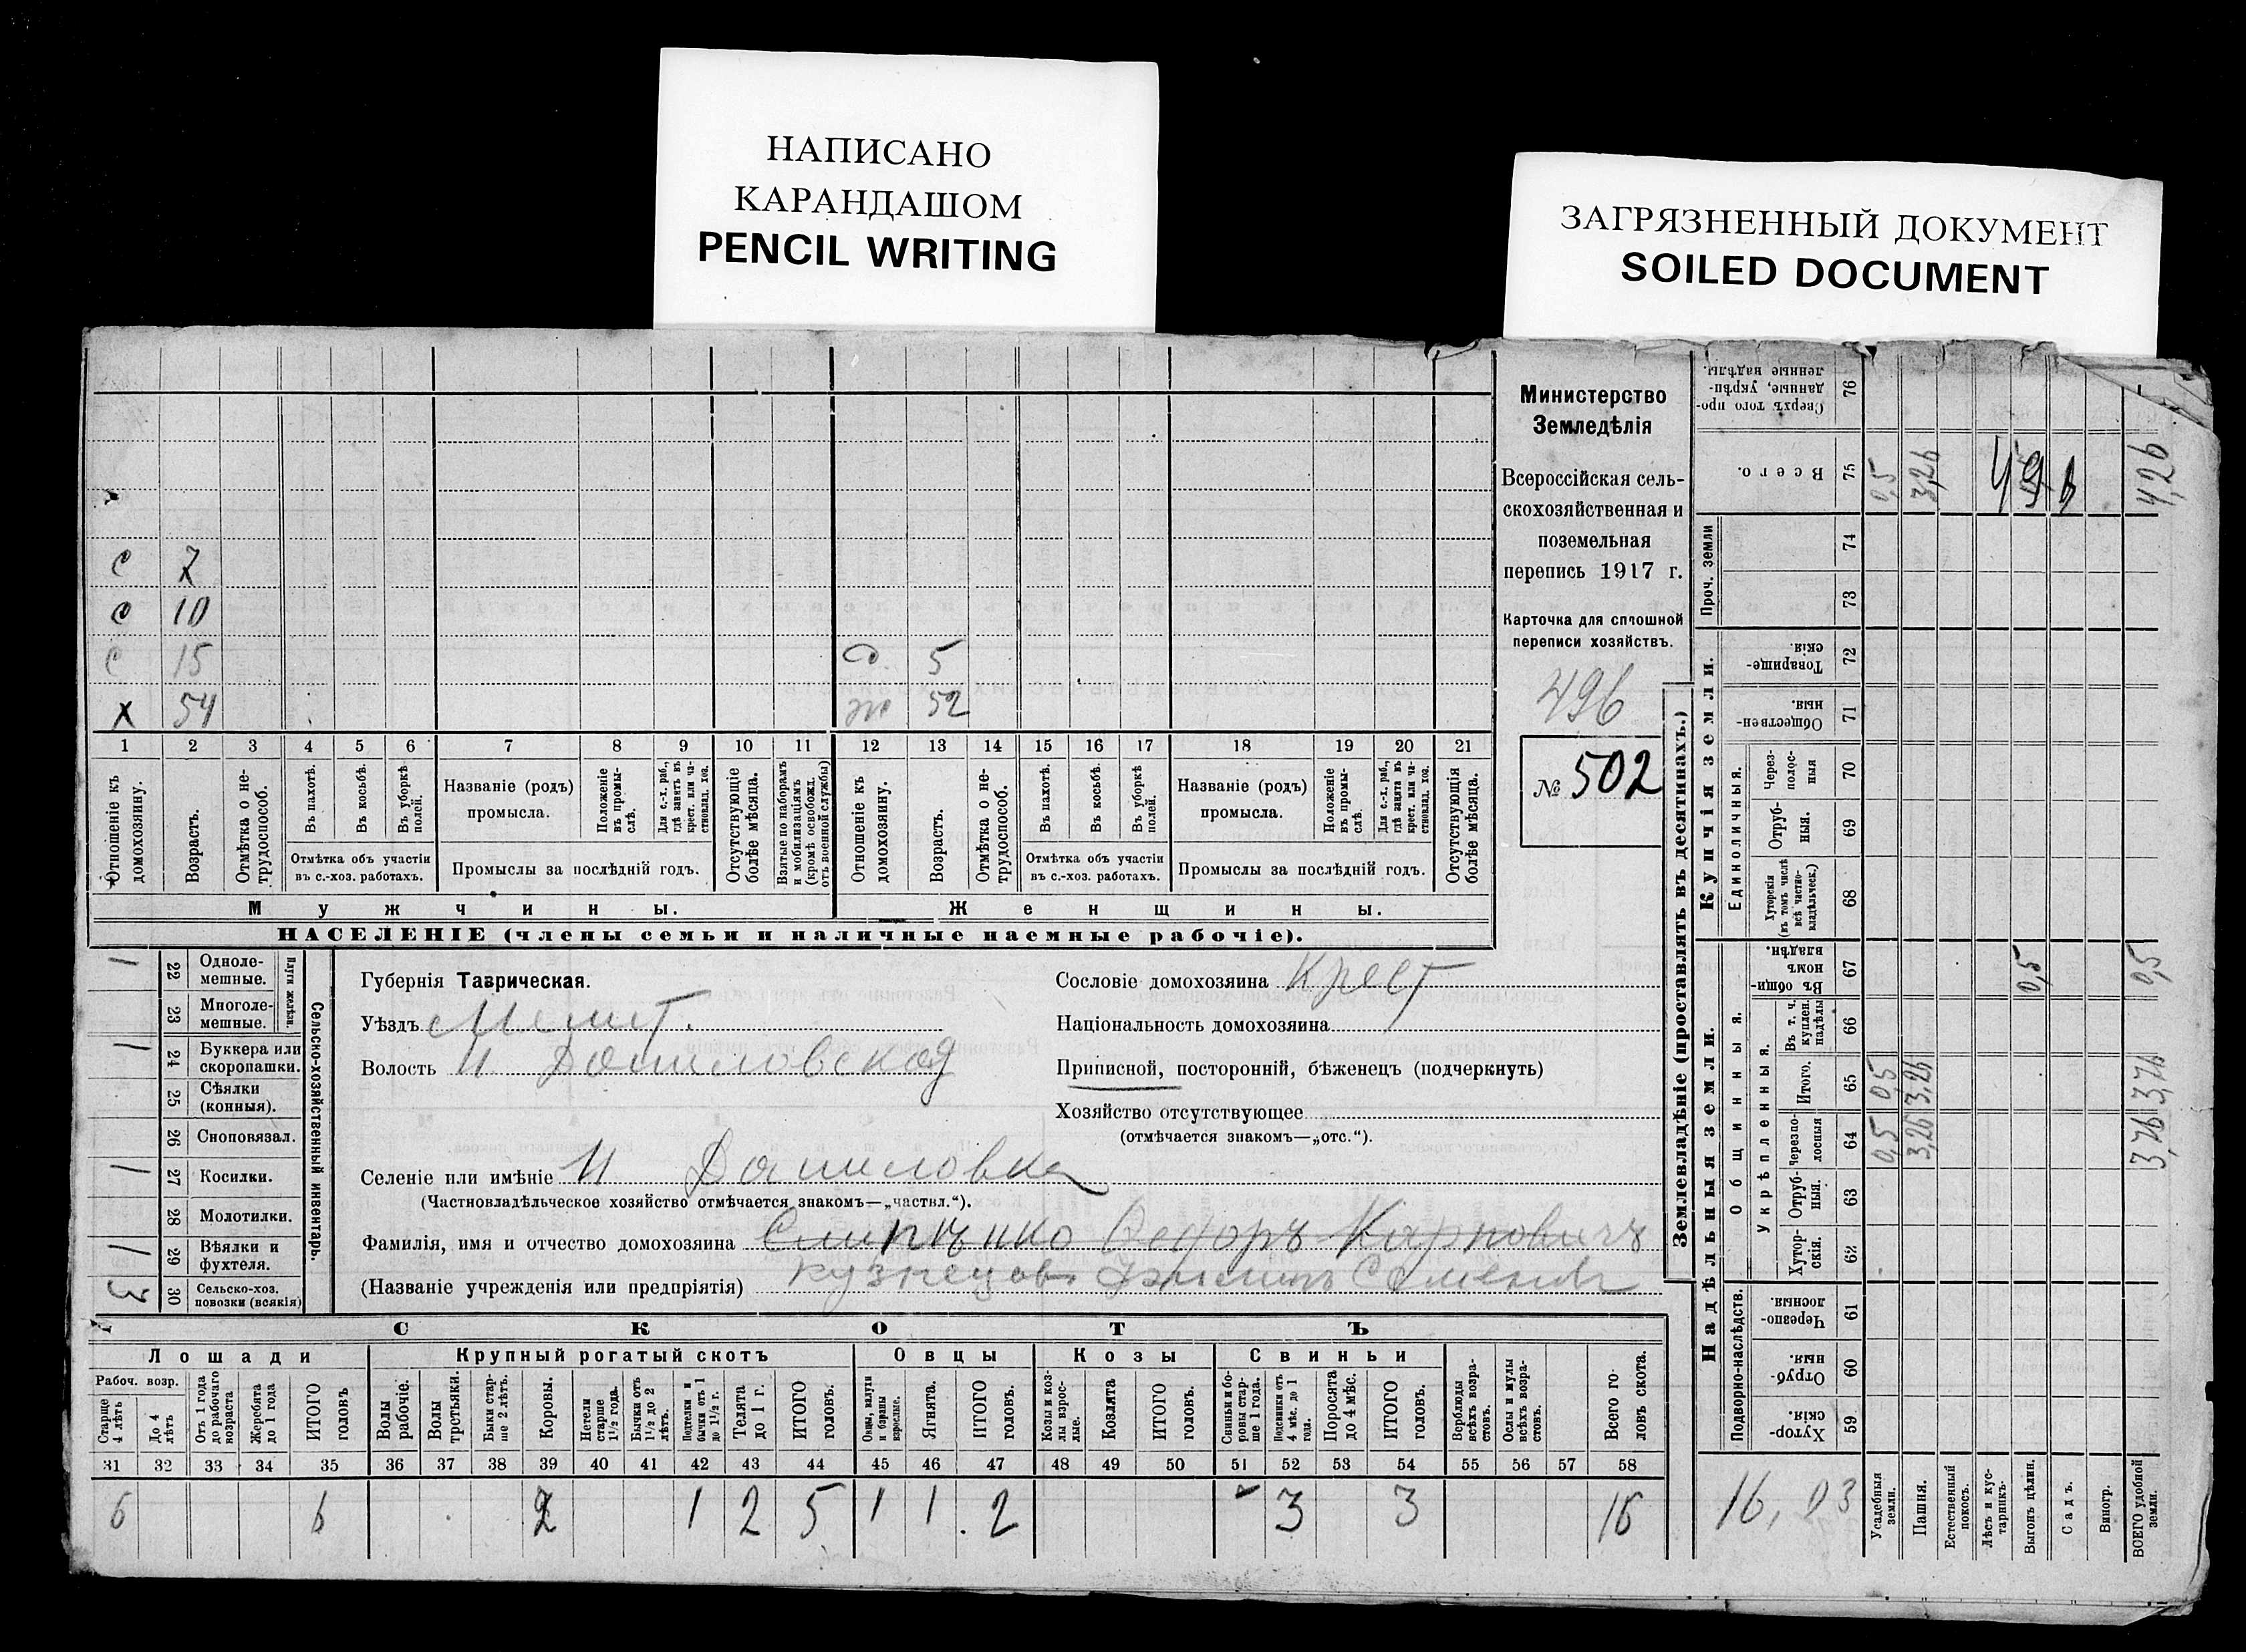 НАПИСАНО
КАРАНДАШОМ
PENCIL WRITING
ЗАГРЯЗНЕННЫЙ ДОКУМЕНТ
SOILED DOCUMENT
с 7
с 10
с 15 д. 5
х 54 ж 52
1 2 3 4 5 6 7 8 9 10 11 12 13 14 15 16 17 18 19 20 21
Отношеніе къ домохозяину.
Возрастъ.
Отмѣтка о не-трудоспособ.
Въ пахотѣ.
Въ косьбѣ.
Въ уборкѣ полей.
Отмѣтка объ участіи
въ с.-хоз. работахъ.
Названіе (родъ)
промысла.
Положеніе въ промы-слѣ.
Для с.-х. раб., гдѣ занятъ въ крест. или ча-стновлад. хоз.
Промыслы за послѣдній годъ.
Отсутствующіе болѣе мѣсяца.
Взятые по наборамъ и мобилизаціямъ (кромѣ освобожд. отъ военной службы)
Отношеніе къ домохозяину.
Возрастъ.
Отмѣтка о не-трудоспособ.
Въ пахотѣ.
Въ косьбѣ.
Въ уборкѣ полей.
Отмѣтка объ участіи
въ с.-хоз. работахъ.
Названіе (родъ)
промысла.
Положеніе въ промы-слѣ.
Для с.-х. раб., гдѣ занята въ крест. или ча-стновлад. хоз.
Промыслы за послѣдній годъ.
Отсутствующія болѣе мѣсяца.
Мужчины.
Женщины.
НАСЕЛЕНІЕ (члены семьи и наличные наемные рабочіе).
Министерство
Земледѣлія
Всероссійская сель-
скохозяйственная и
поземельная
перепись 1917 г.
Карточка для сплошной
переписи хозяйствъ.
496
№ 502
1 22 Одноле-мешные.
23 Многоле-мешные.
Плуги желѣзн.
1 24 Буккера или скоропашки.
25 Сѣялки (конныя).
26 Сноповязал.
1 27 Косилки.
28 Молотилки.
1 29 Вѣялки и фухтеля.
3 30 Сельско-хоз. повозки (всякія)
Сельско-хозяйственный инвентарь.
Губернія Таврическая.
Уѣздъ Мелит.
Волость И Даниловская
Селеніе или имѣніе И Даниловка
(Частновладѣльческое хозяйство отмѣчается знакомъ—„частвл.“).
Фамилія, имя и отчество домохозяина Федоръ Карповичъ
(Названіе учрежденія или предпріятія) Кузнецовъ Семенов
Сословіе домохозяина Крест
Національность домохозяина
Приписной, посторонній, бѣженецъ (подчеркнуть)
Хозяйство отсутствующее
(отмѣчается знакомъ—„отс.“).
СКОТЪ
Лошади Крупный рогатый скотъ Овцы Козы Свиньи
Рабоч. возр.
Старше 4 лѣтъ
До 4 лѣтъ
Отъ 1 года до рабочаго возраста
Жеребята до 1 года
ИТОГО головъ
Волы рабочіе.
Волы третьяки.
Быки стар-ше 2 лѣтъ.
Коровы.
Нетели старше 1½ года.
Бычки отъ 1½ до 2 лѣтъ.
Подтелки и бычки отъ 1 до 1½ г.
Телята до 1 г.
ИТОГО головъ.
Овцы, валухи и бараны взрослые.
Ягнята.
ИТОГО головъ.
Козы и коз-лы взрос-лые.
Козлята
ИТОГО головъ.
Свиньи и бо-ровы стар-ше 1 года.
Подсвинки отъ 4 мѣс. до 1 года.
Поросята до 4 мѣс.
ИТОГО головъ.
Верблюды всѣхъ возра-стовъ.
Ослы и мулы всѣхъ возра-стовъ.
Всего го-ловъ скота.
31 32 33 34 35 36 37 38 39 40 41 42 43 44 45 46 47 48 49 50 51 52 53 54 55 56 57 58
6 6 2 1 2 5 1 1 2 3 3 16
Землевладѣніе (проставлять въ десятинахъ.)
Надѣльныя земли.
Купчія земли.
Проч. земли
Сверхъ того про-данные, укрѣп-ленные надѣлы. 76
Всего. 75 0,5 3,26 4,26
74
73
Товарище-скія. 72
Обществен-ныя. 71
Единоличныя.
Через-полос-ныя 70
Отруб-ныя. 69
Хуторскія (въ томъ числѣ всѣ частно-владѣльческ.) 68
Общинныя.
Въ общи-номъ владѣн. 67 0,5 0,5
Укрѣпленныя.
Въ т. ч. куплен. надѣлы 66
Итого. 65 0,5 3,26 3,76
Черезпо-лосныя 64 0,5 3,26 3,76
Отруб-ныя. 63
Хутор-скія. 62
Подворно-наслѣдств.
Черезпо-лосныя. 61
Отруб-ныя. 60
Хутор-скія. 59
16, 03
Усадебныя земли.
Пашня.
Естественный покосъ.
Лѣсъ и кус-тарникъ.
Выгонъ цѣлин.
Садъ.
Виногр.
ВСЕГО удобной земли.